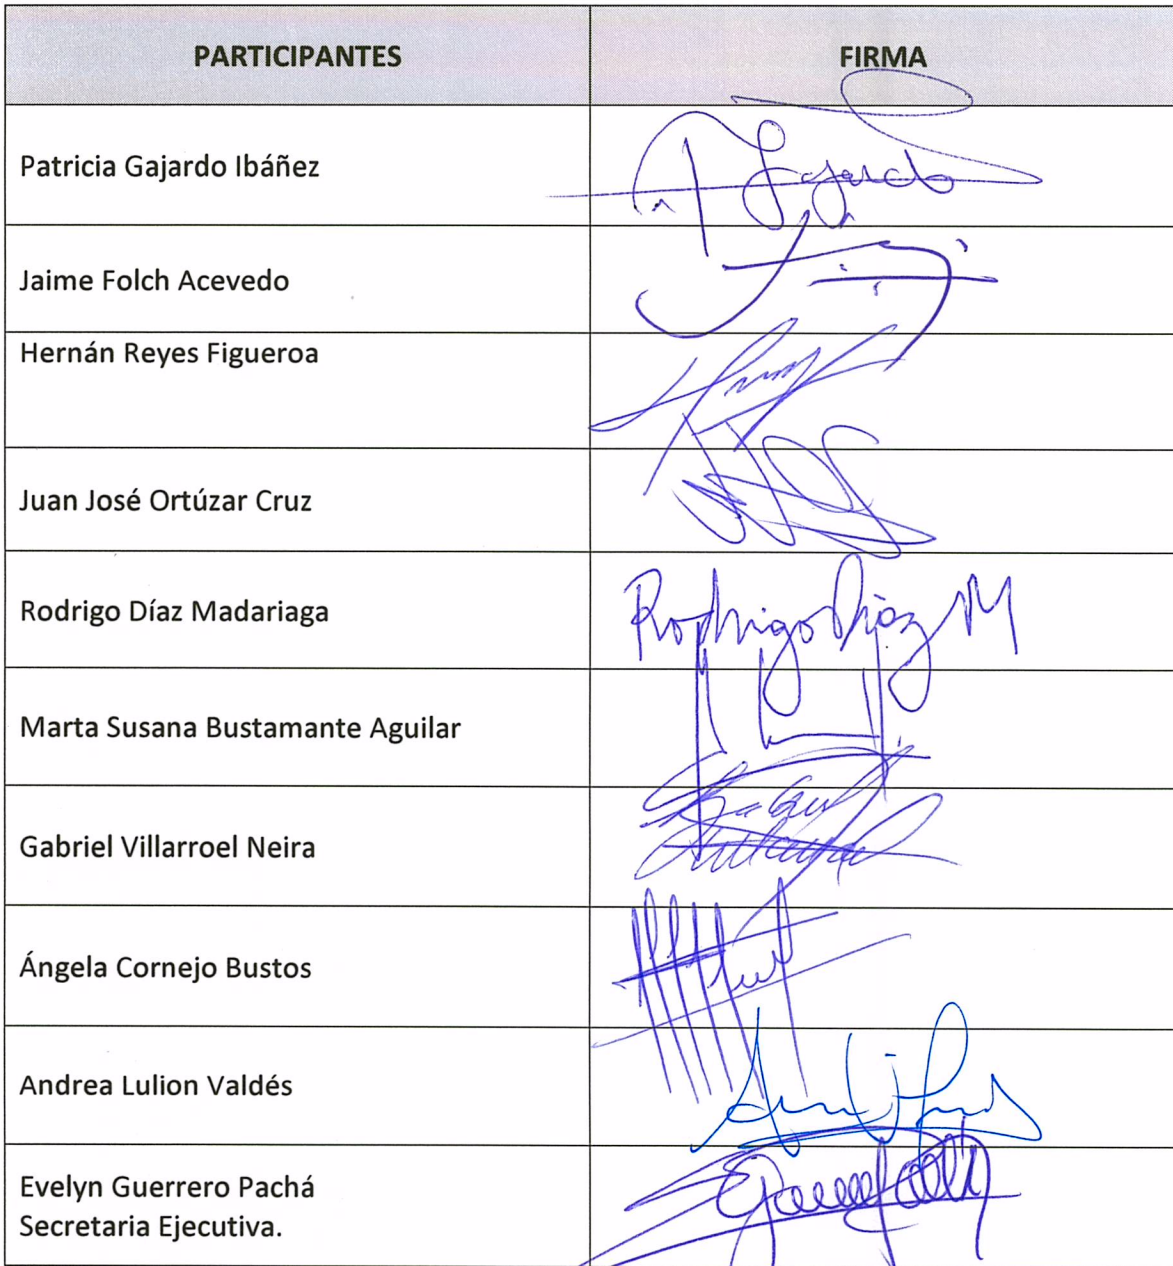 PARTICIPANTES FIRMA
Patricia Gajardo Ibáñez Gajardo
Jaime Folch Acevedo
Hernán Reyes Figueroa
Juan José Ortúzar Cruz
Rodrigo Díaz Madariaga Rodrigo Díaz M
Marta Susana Bustamante Aguilar
Gabriel Villarroel Neira
Ángela Cornejo Bustos
Andrea Lulion Valdés
Evelyn Guerrero Pachá
Secretaria Ejecutiva.